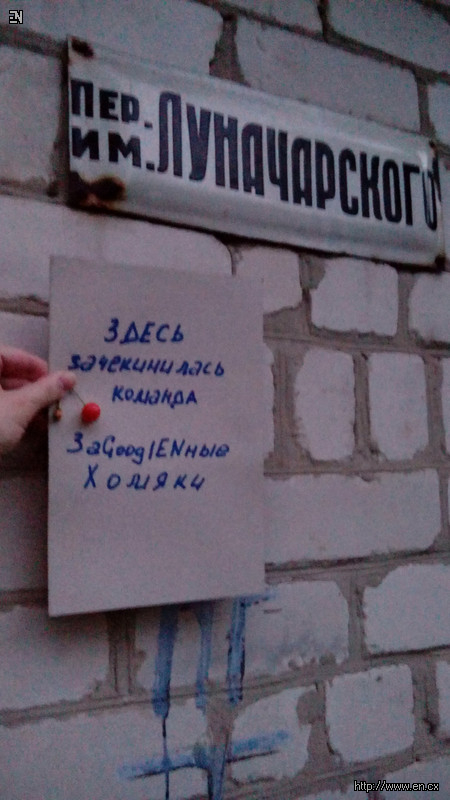 EN
ПЕР.
ИМ. ЛУНАЧАРСКОГО
ЗДЕСЬ
зачекинилась
команда
ЗаGooglENные
Хомяки
http://www.en.cx